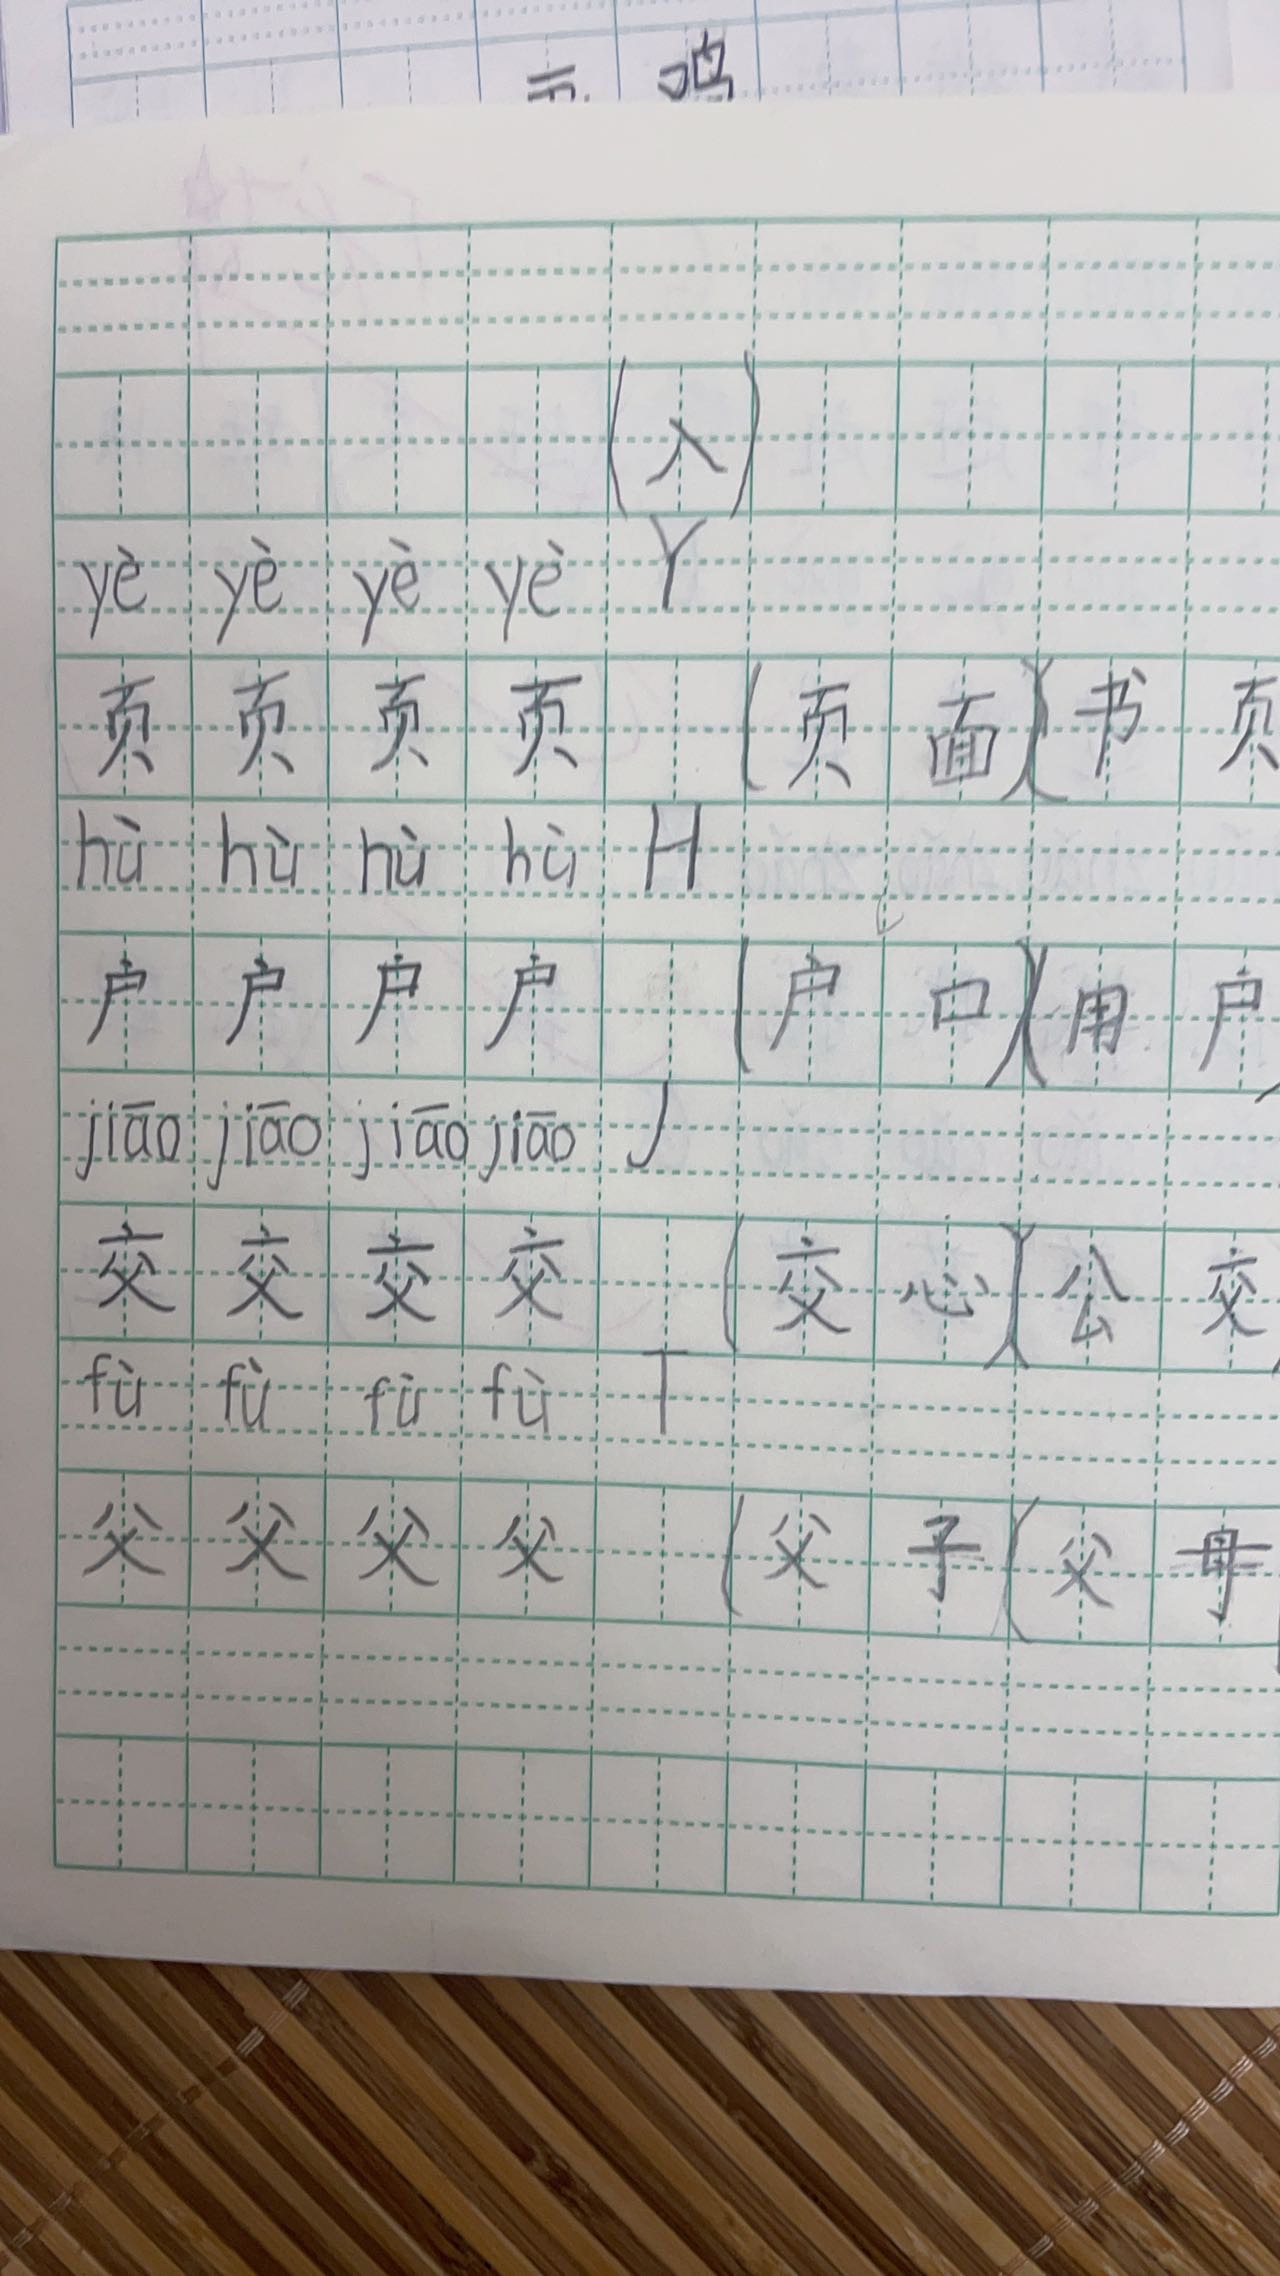 (入)
yè yè yè yè Y
页 页 页 页 (页 面)(书 页
hù hù hù hù H
户 户 户 户 (户 口)(用 户
jiāo jiāo jiāo jiāo J
交 交 交 交 (交 心)(公 交
fù fù fù fù T
父 父 父 父 (父 子(父 母